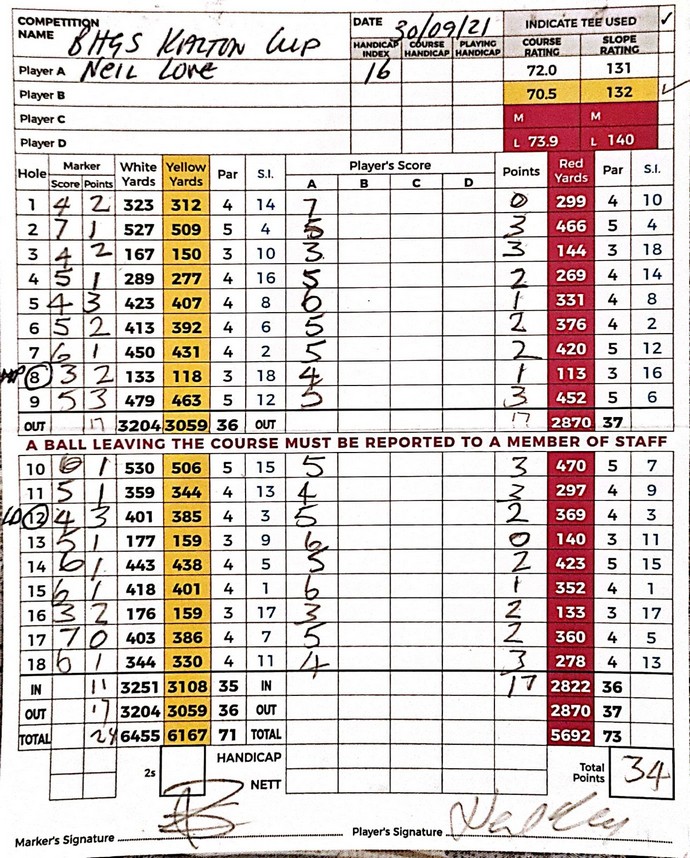 COMPETITION NAME BHGS KARTON CUP DATE 30/09/21 INDICATE TEE USED ✓
HANDICAP INDEX COURSE HANDICAP PLAYING HANDICAP COURSE RATING SLOPE RATING
Player A NEIL LOVE 16 72.0 131
Player B 70.5 132 ✓
Player C M M
Player D L 73.9 L 140
Hole Marker White Yards Yellow Yards Par S.I. Player's Score Points Red Yards Par S.I.
Score Points A B C D
1 4 2 323 312 4 14 7 0 299 4 10
2 7 1 527 509 5 4 5 3 466 5 4
3 4 2 167 150 3 10 3 3 144 3 18
4 5 1 289 277 4 16 5 2 269 4 14
5 4 3 423 407 4 8 6 1 331 4 8
6 5 2 413 392 4 6 5 2 376 4 2
7 6 1 450 431 4 2 5 2 420 5 12
NP 8 3 2 133 118 3 18 4 1 113 3 16
9 5 3 479 463 5 12 5 3 452 5 6
OUT 17 3204 3059 36 OUT 17 2870 37
A BALL LEAVING THE COURSE MUST BE REPORTED TO A MEMBER OF STAFF
10 6 1 530 506 5 15 5 3 470 5 7
11 5 1 359 344 4 13 4 3 297 4 9
LD 12 4 3 401 385 4 3 5 2 369 4 3
13 5 1 177 159 3 9 6 0 140 3 11
14 6 1 443 438 4 5 5 2 423 5 15
15 6 1 418 401 4 1 6 1 352 4 1
16 3 2 176 159 3 17 3 2 133 3 17
17 7 0 403 386 4 7 5 2 360 4 5
18 6 1 344 330 4 11 4 3 278 4 13
IN 11 3251 3108 35 IN 17 2822 36
OUT 17 3204 3059 36 OUT 2870 37
TOTAL 24 6455 6167 71 TOTAL 5692 73
2s HANDICAP Total Points 34
NETT
Marker's Signature Player's Signature